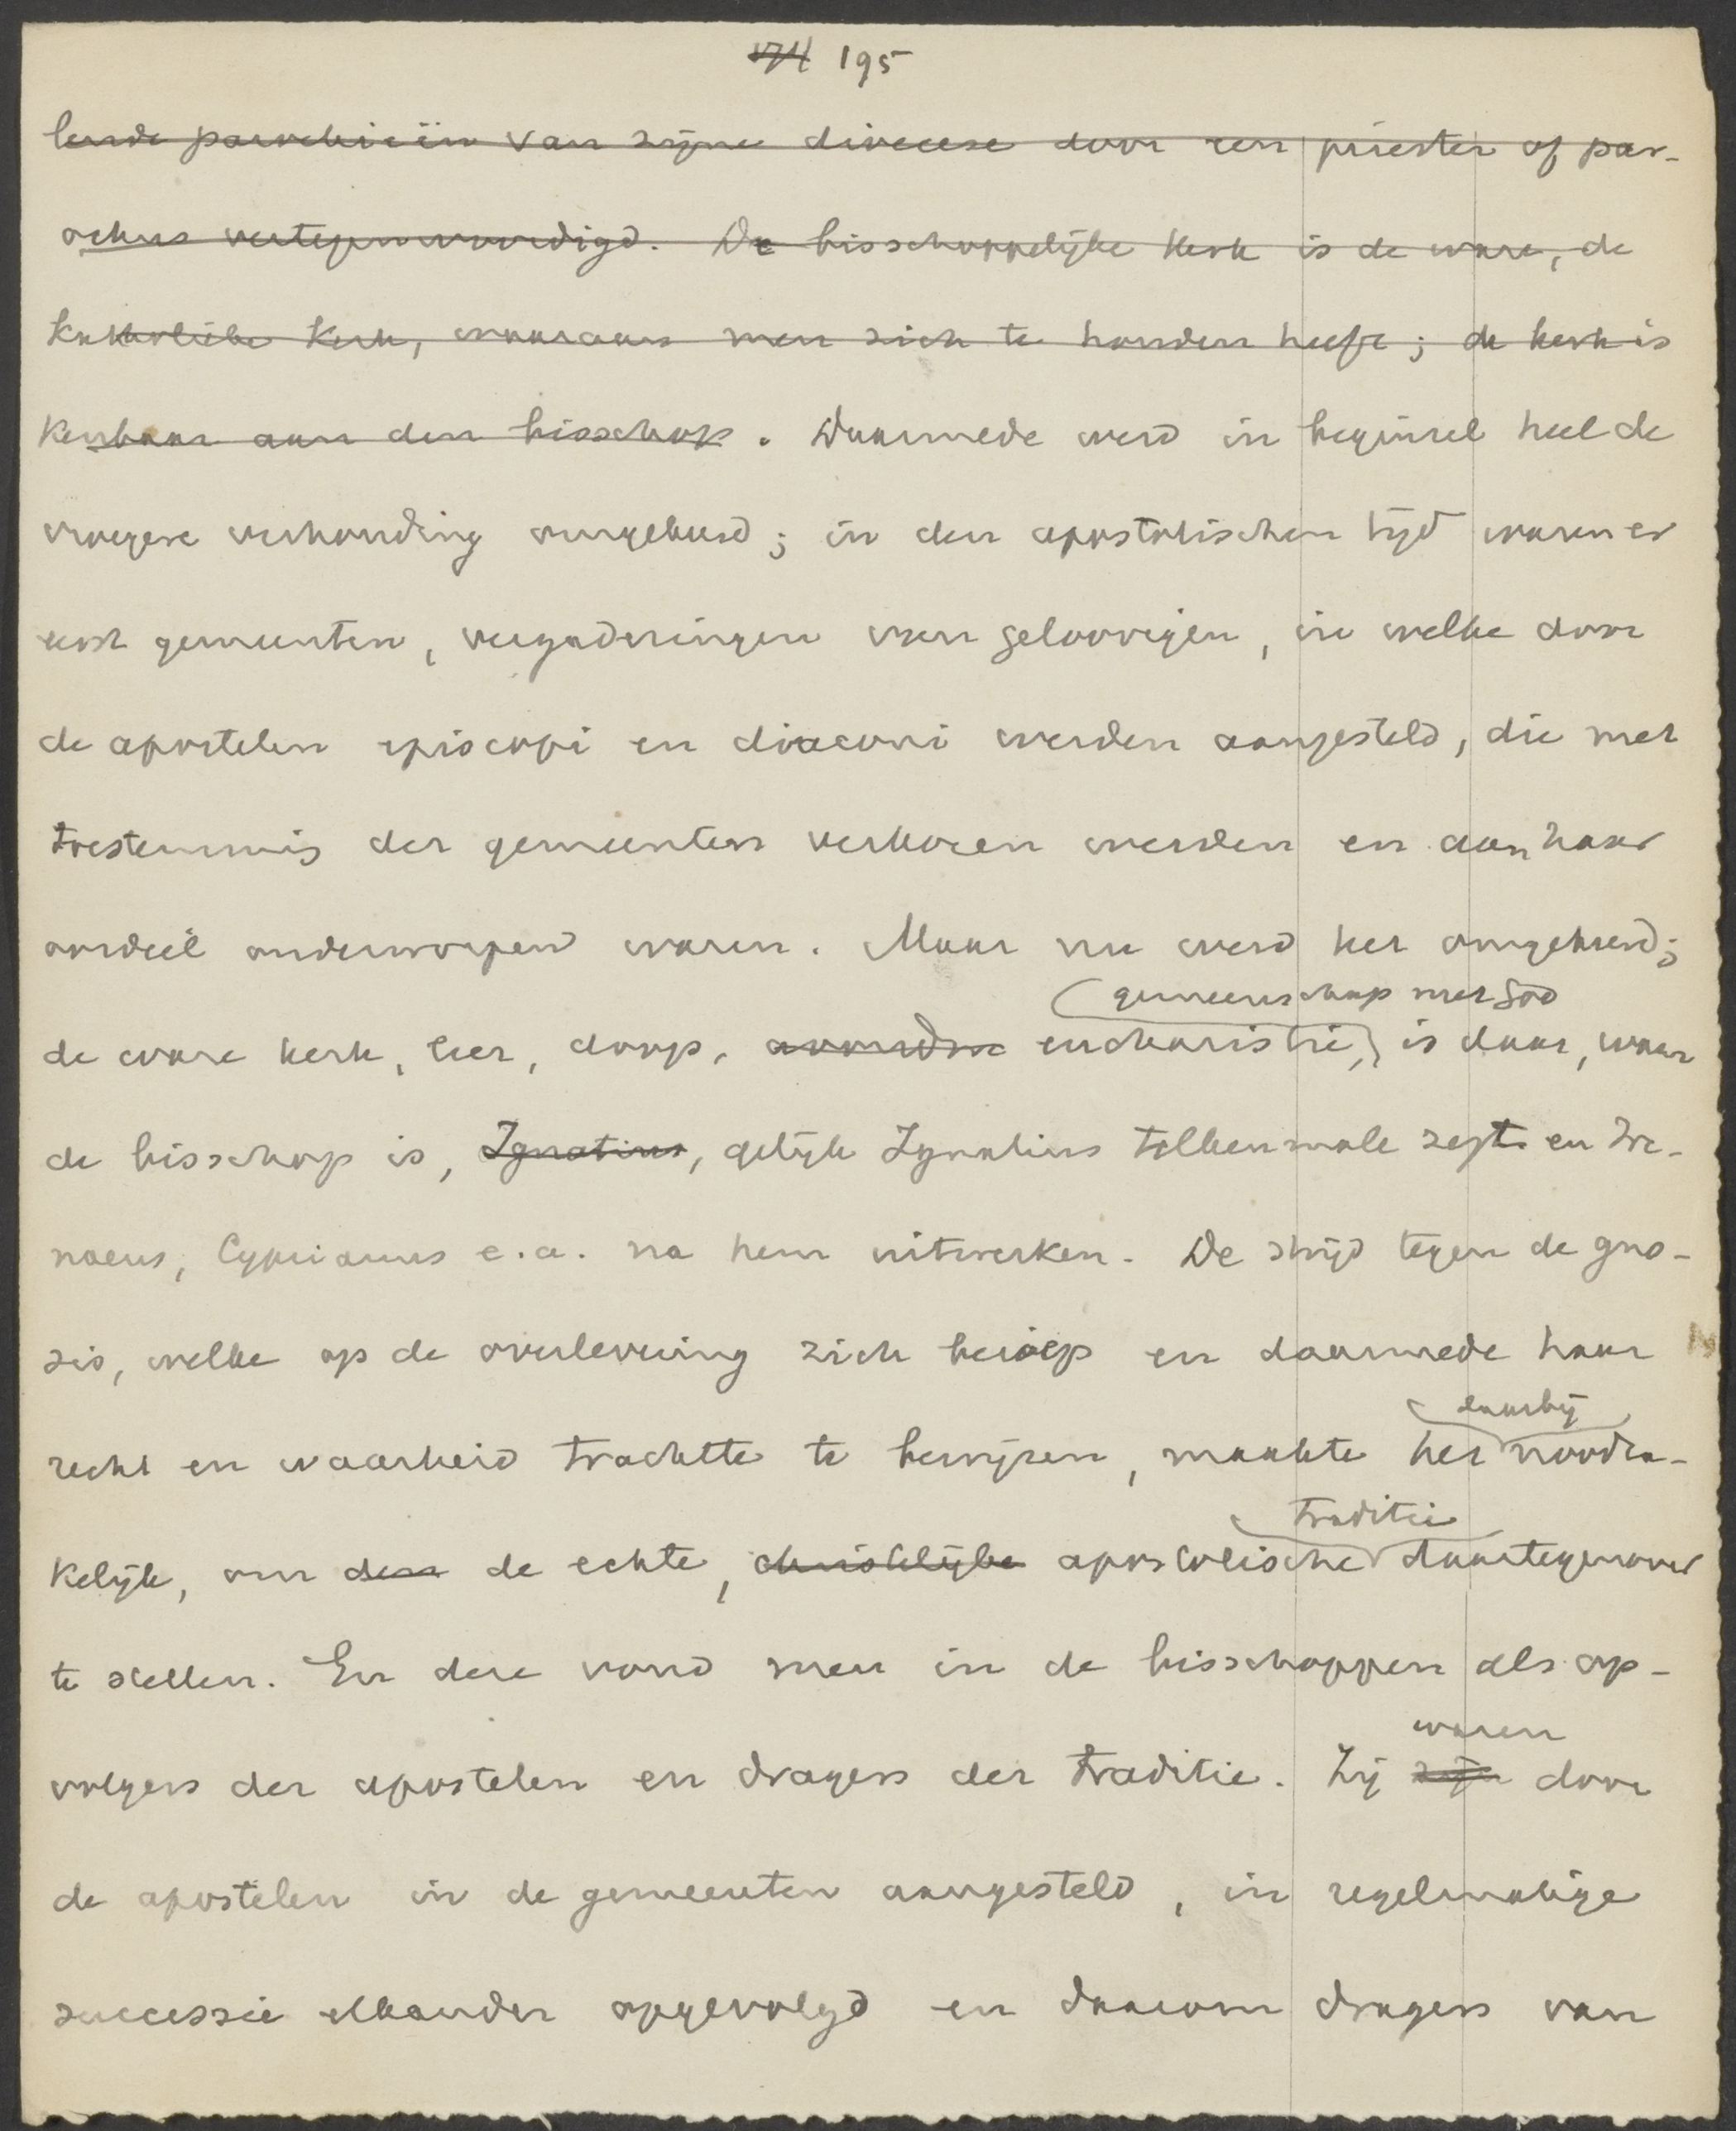 174 195
lende parochieën van zijne diocese door een priester of par-
ochus vertegenwoordigd. De bisschoppelijke kerk is de ware, de
katholieke kerk, waaraan men zich te houden heeft; de kerk is
kenbaar aan den bisschop. Daarmede werd in beginsel heel de
vroegere verhouding omgekeerd; in den apostolischen tijd waren er
eerst gemeenten, vergaderingen van geloovigen, in welke door
de apostelen episcopi en diaconi werden aangesteld, die met
toestemming der gemeenten verkozen werden en aan haar
oordeel onderworpen waren. Maar nu werd het omgekeerd;
gemeenschap met God
de ware kerk, leer, doop, avondm eucharistie, is daar, waar
de bisschop is, Ignatius, gelijk Ignatius telkenmale zegt en Ire-
naeus, Cyprianus e.a. na hem uitwerken. De strijd tegen de gno-
sis, welke op de overlevering zich beriep en daarmede haar
daarbij
recht en waarheid trachtte te bewijzen, maakte het noodza-
traditie
kelijk, om den de echte, christelijke apostolische daartegenover
te stellen. En deze vond men in de bisschoppen als op-
waren
volgers der apostelen en dragers der traditie. Zij zijn door
de apostelen in de gemeenten aangesteld, in regelmatige
successie elkander opgevolgd en daarom dragers van